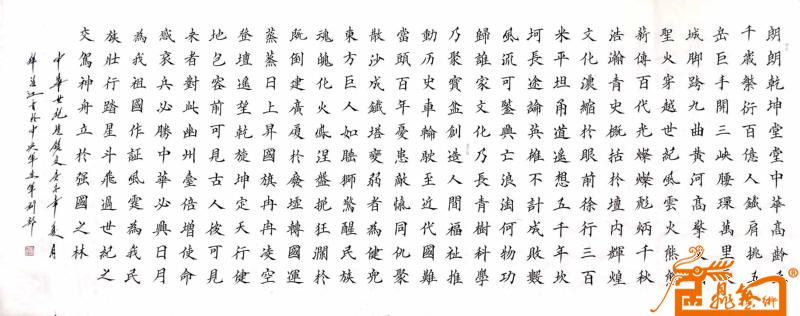 朗朗乾坤堂堂中華高齡
千歲繁衍百億人鐵肩挑五
岳巨手開三峽腰環萬里
城脚跨九曲黃河高擎
聖火穿越世紀風雲火熊
薪傳百代光燦燦彪炳千秋
浩瀚青史概括於壇內輝煌
文化濃縮於眼前徐行三百
米平坦甬道遙想五千年坎
坷長途論英雄不計成敗數
風流可鑒興亡浪淘何物功
歸誰家文化乃長青樹科學
乃聚寶盆創造人間福祉推
動历史車輪駛至近代國難
當頭百年憂患敵愾同仇聚
散沙成鐵塔變弱者為健兒
東方巨人如膽獅驚醒民族
魂魄化火鳳涅盤挽狂瀾於
既倒建廣厦於廢墟轉國運
蒸蒸日上昇國旗冉冉凌空
登壇遙望乾旋坤定天行健
地包容前可見古人後可見
來者對此幽州臺倍增使命
感哀兵必勝中華必興日月
為我祖國作証風雲為我民
族壯行踏星斗飛過世紀之
交駕神舟立於强國之林
中華世紀壇賦文年夏月
江書於中央軍委軍刊部